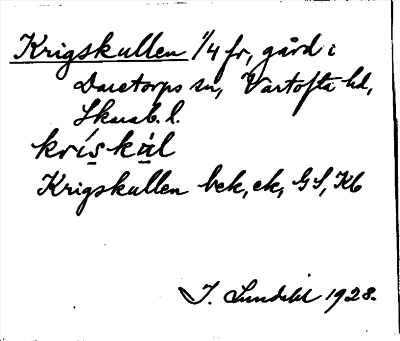 Krigskullen 1/4 fr, gård i
Daretorps sn, Vartofta hd,
Skarab. l.
krískál
Krigskullen bek, ek, GS, Kb
I. Lundahl 1928.